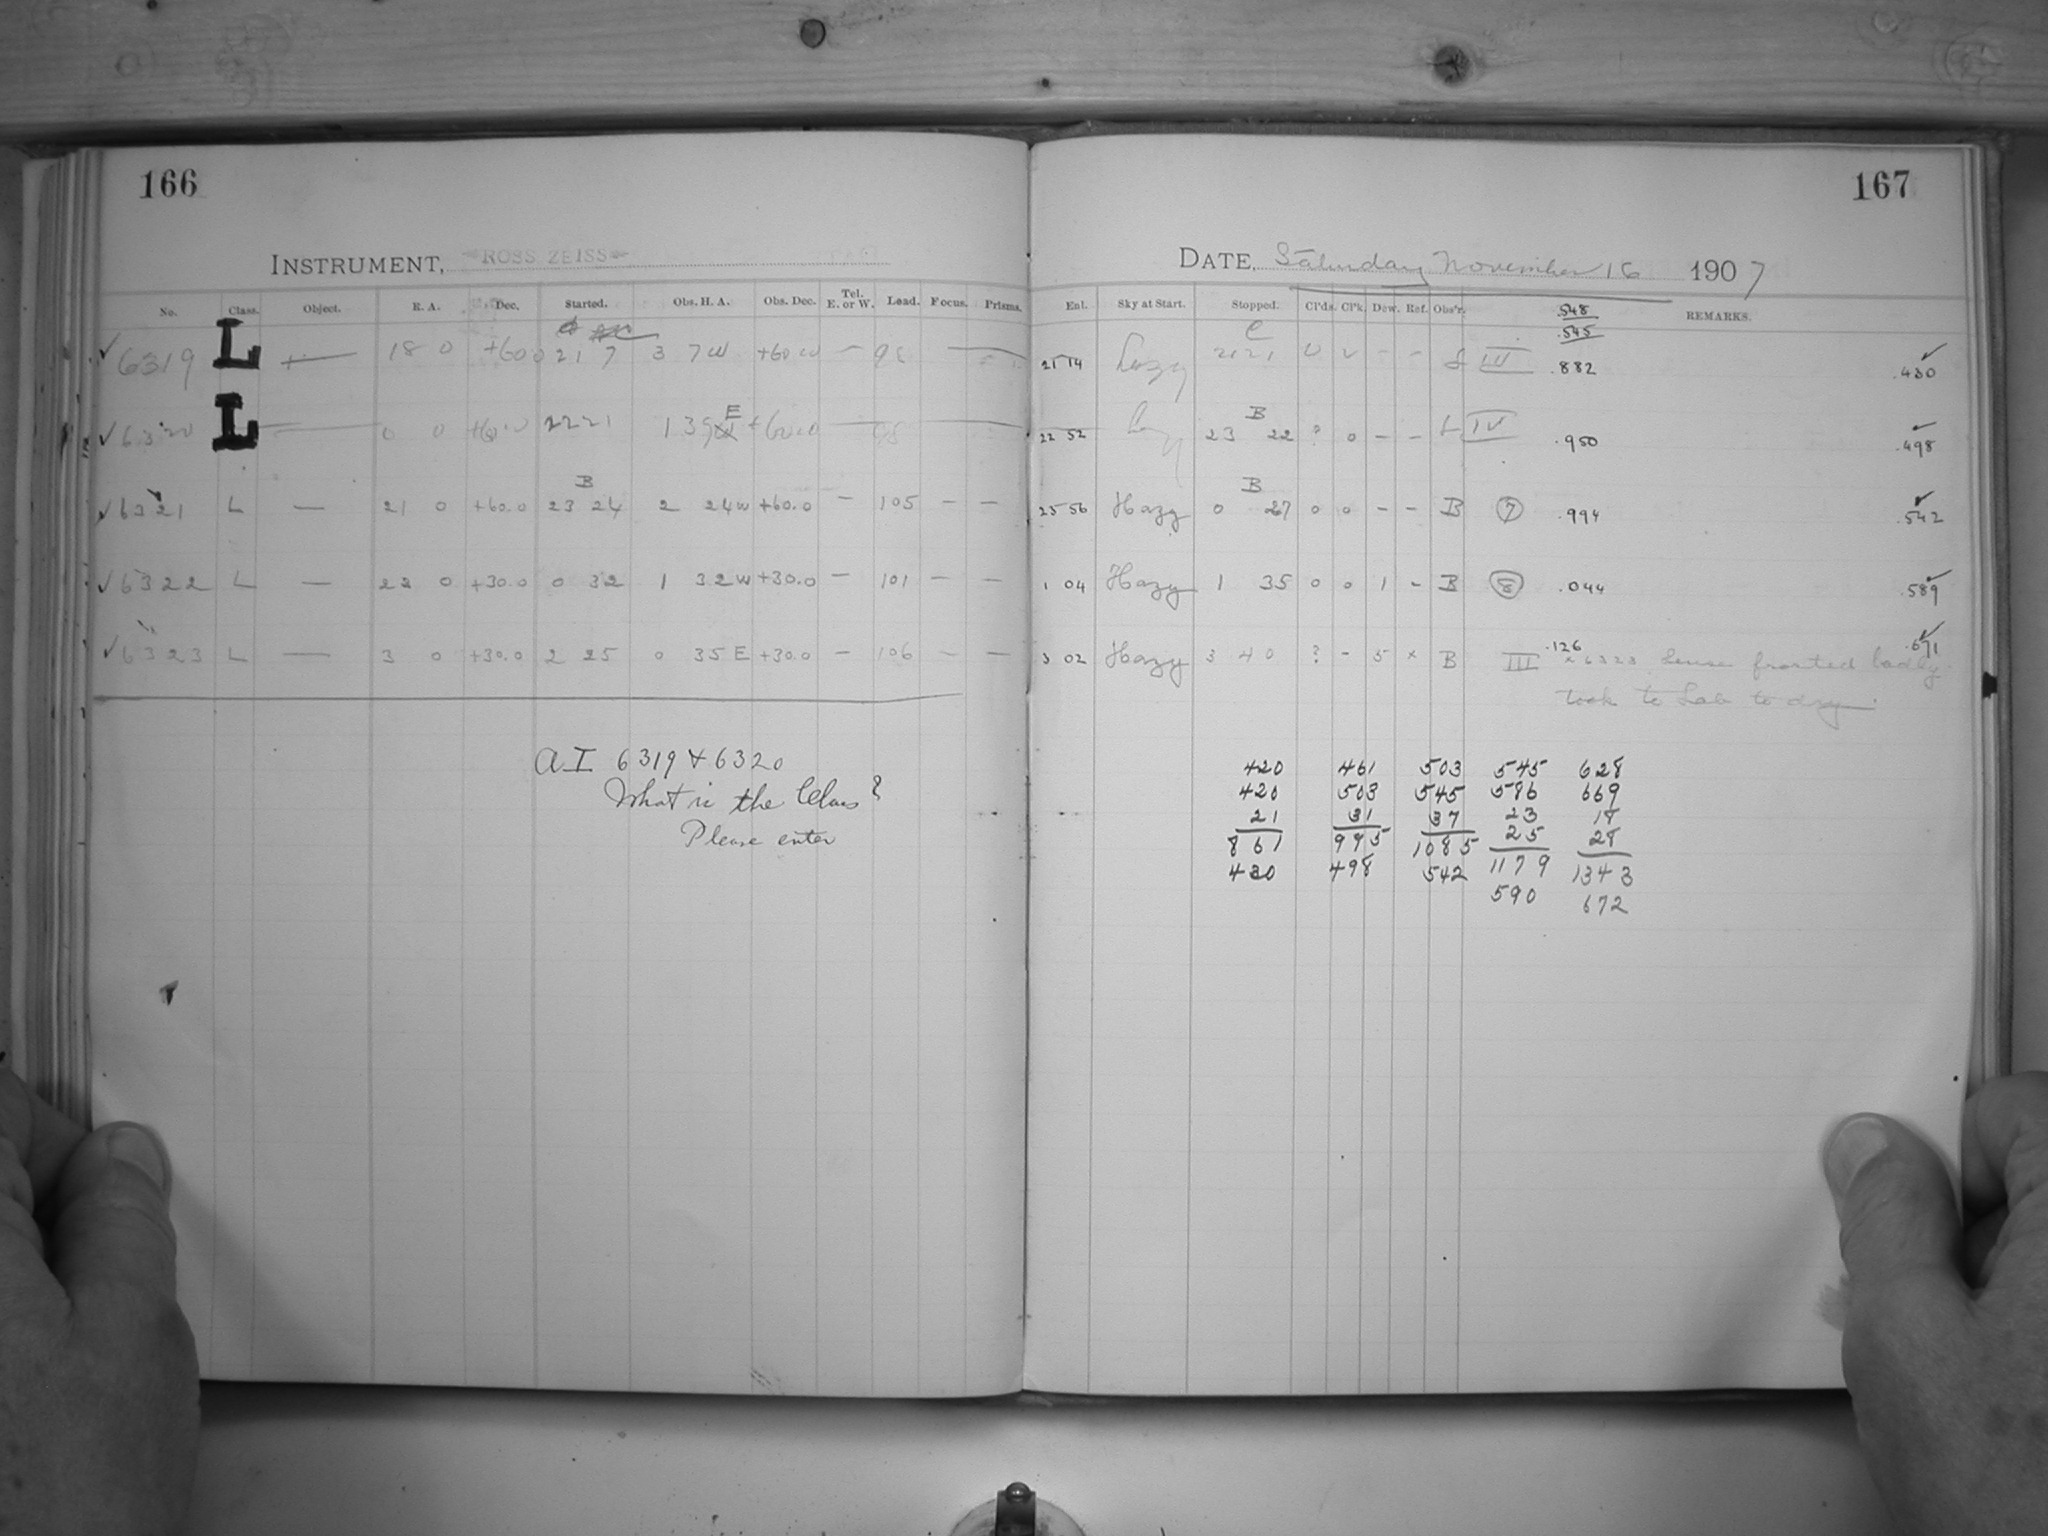 166
INSTRUMENT, ROSS ZEISS
No. Class. Object. R. A. Dec. Started. Obs. H. A. Obs. Dec. Tel. E. or W. Lead. Focus. Prisms.
✓ 6319 L — 18 0 +60 0 21 7 3 7 W +60 0 — 98 —
✓ 6320 L — 0 0 +60.0 22 21 1 39 E +60.0 — 98 —
✓ 6321 L — 21 0 +60.0 B 23 24 2 24 W +60.0 — 105 — —
✓ 6322 L — 22 0 +30.0 0 32 1 32 W +30.0 — 101 — —
✓ 6323 L — 3 0 +30.0 2 25 0 35 E +30.0 — 106 — —
A I 6319 & 6320
What is the Class?
Please enter
167
DATE, Saturday November 16 1907
Ent. Sky at Start. Stopped. Cl'ds. Cl'k. Dew. Ref. Obs'r. REMARKS.
.548
.545
21 14 Hazy 21 21 – – IV .882 .430 ✓
22 52 B 23 22 ? 0 – – L IV .950 .498 ✓
23 56 Hazy B 0 27 0 0 – – B 7 .994 .542 ✓
1 04 Hazy 1 35 0 0 1 – B 8 .044 .589 ✓
3 02 Hazy 3 40 ? – 5 x B III .126 .671 ✓
x 6323 Lense frosted badly
took to Lab to dry.
420 461 503 545 628
420 503 545 586 669
21 31 37 23 18
861 995 1085 25 28
430 498 542 1179 1343
590 672